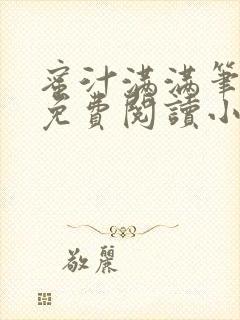 蜜汁滿滿筆
免費閱讀小
敬麗